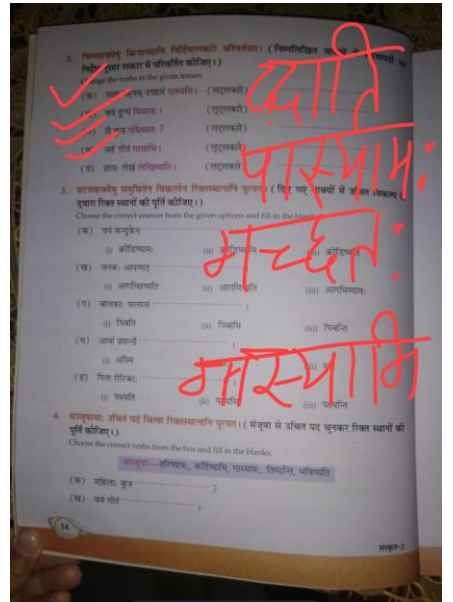 2. निम्नवाक्येषु क्रियापदानि निर्दिष्टलकारे परिवर्तयत। (निम्नलिखित
निर्देशानुसार लकार में परिवर्तित कीजिए।)
Change the verbs in the given tenses.
(क) उपहारं दास्यति। (लट्लकारे)
ददाति
(ख) वयं दुग्धं पिबामः। (लृट्लकारे)
पास्यामः
(ग) तौ गमिष्यतः? (लट्लकारे)
गच्छतः
(घ) अहं गीतं गायामि। (लृट्लकारे)
गास्यामि
(ङ) छात्रः लेखं लेखिष्यति। (लट्लकारे)
3. प्रदत्तवाक्येषु समुचितेन विकल्पेन रिक्तस्थानानि पूरयत। (दिए गए वाक्यों में उचित विकल्प
द्वारा रिक्त स्थानों की पूर्ति कीजिए।)
Choose the correct answer from the given options and fill in the blanks.
(क) वयं कन्दुकेन
(i) क्रीडिष्यामः (ii) क्रीडिष्यामि (iii) क्रीडिष्यति
(ख) जनकः आपणात्
(i) आगच्छिष्यति (ii) आगमिष्यति (iii) आगमिष्यावः
(ग) बालकाः फलरसं
(i) पिबति (ii) पिबामि (iii) पिबन्ति
(घ) आवां प्रसन्नौ
(i) अस्मि
(ङ) पिता रोटिकाः
(i) पश्यति (ii) (iii) पश्यन्ति
4. मञ्जूषायाः उचितं पदं चित्वा रिक्तस्थानानि पूरयत। (मंजूषा से उचित पद चुनकर रिक्त स्थानों की
पूर्ति कीजिए।)
Choose the correct verbs from the box and fill in the blanks.
मञ्जूषा – तरिष्यावः, कर्तिष्यामि, गास्यामः, तिष्ठन्ति, भविष्यति
(क) महिलाः कुत्र ?
(ख) वयं गीतं ।
54
संस्कृत-2